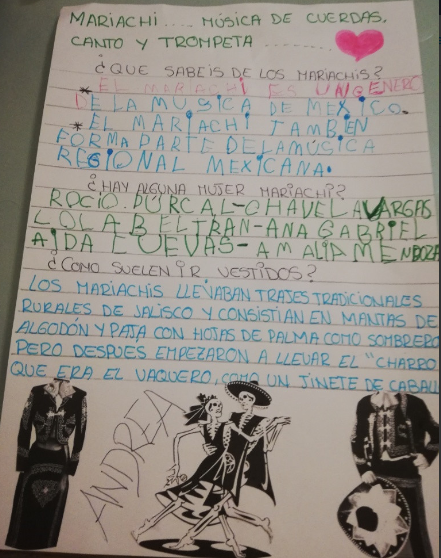 MARIACHI .... MÚSICA DE CUERDAS,
CANTO Y TROMPETA ..........
¿QUE SABEIS DE LOS MARIACHIS?
* EL MARIACHI ES UN GENERO
DE LA MUSICA DE MEXICO.
* EL MARIACHI TAMBIEN
FORMA PARTE DE LA MÚSICA
REGIONAL MEXICANA.
¿HAY ALGUNA MUJER MARIACHI?
ROCIO DURCAL-CHAVELA VARGAS
LOLA BELTRAN-ANA GABRIEL
AIDA CUEVAS-AMALIA MENDOZA
¿COMO SUELEN IR VESTIDOS?
LOS MARIACHIS LLEVABAN TRAJES TRADICIONALES
RURALES DE JALISCO Y CONSISTIAN EN MANTAS DE
ALGODÓN Y PAJA CON HOJAS DE PALMA COMO SOMBRERO
PERO DESPUES EMPEZARON A LLEVAR EL "CHARRO
QUE ERA EL VAQUERO, COMO UN JINETE DE CABALL
ANDREA